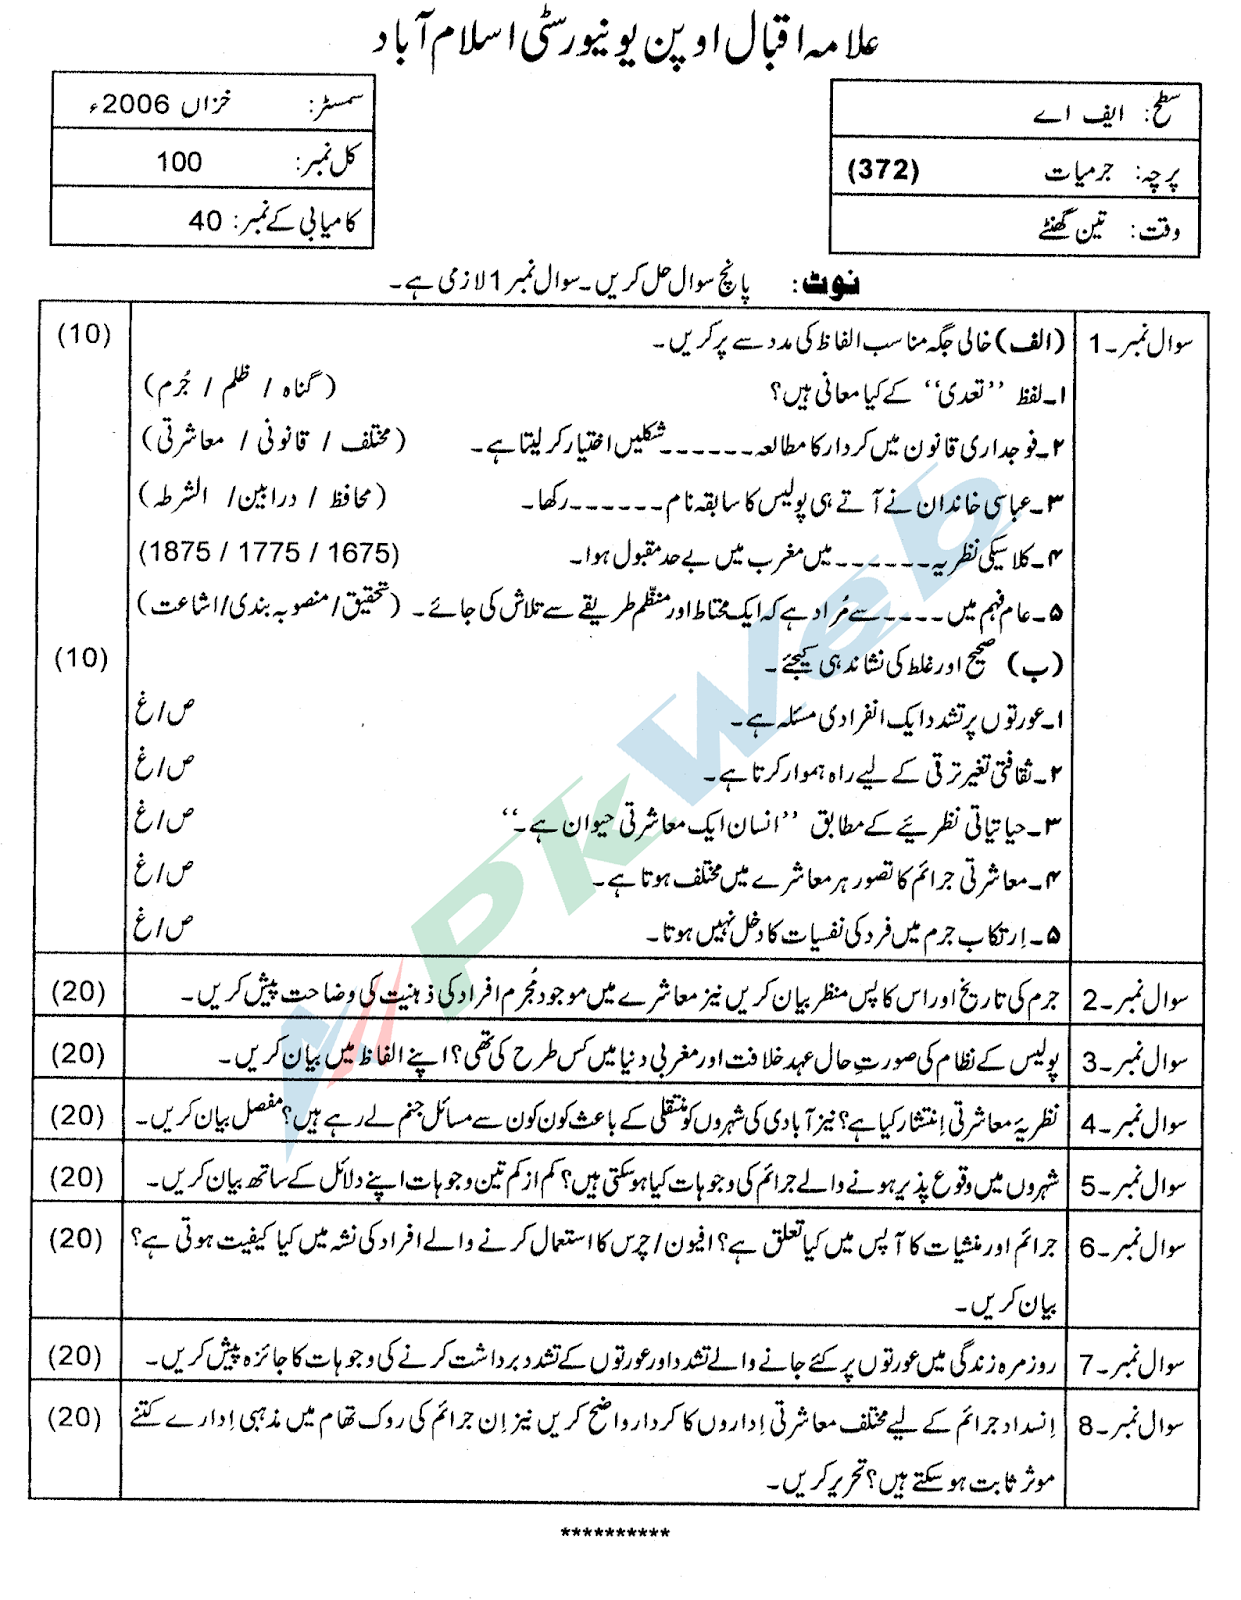 علامہ اقبال اوپن یونیورسٹی اسلام آباد
سطح: ایف اے
پرچہ: جرمیات (372)
وقت: تین گھنٹے
سمسٹر: خزاں 2006ء
کل نمبر: 100
کامیابی کے نمبر: 40
نوٹ: پانچ سوال حل کریں۔ سوال نمبر 1 لازمی ہے۔
سوال نمبر۔1 (الف) خالی جگہ مناسب الفاظ کی مدد سے پر کریں۔ (10)
۱۔ لفظ ''تعدی'' کے کیا معانی ہیں؟ (گناہ / ظلم / جُرم)
۲۔ فوجداری قانون میں کردار کا مطالعہ ۔۔۔۔۔۔ شکلیں اختیار کر لیتا ہے۔ (مختلف / قانونی / معاشرتی)
۳۔ عباسی خاندان نے آتے ہی پولیس کا سابقہ نام ۔۔۔۔۔۔ رکھا۔ (محافظ / درابین / الشرطہ)
۴۔ کلاسیکی نظریہ ۔۔۔۔۔۔ میں مغرب میں بے حد مقبول ہوا۔ (1675 / 1775 / 1875)
۵۔ عام فہم میں ۔۔۔۔ سے مُراد ہے کہ ایک محتاط اور منظّم طریقے سے تلاش کی جائے۔ (تحقیق/منصوبہ بندی/اشاعت)
(ب) صحیح اور غلط کی نشاندہی کیجئے۔ (10)
۱۔ عورتوں پر تشدد ایک انفرادی مسئلہ ہے۔ ص/غ
۲۔ ثقافتی تغیر ترقی کے لیے راہ ہموار کرتا ہے۔ ص/غ
۳۔ حیاتیاتی نظریئے کے مطابق ''انسان ایک معاشرتی حیوان ہے۔'' ص/غ
۴۔ معاشرتی جرائم کا تصور ہر معاشرے میں مختلف ہوتا ہے۔ ص/غ
۵۔ اِرتکاب جرم میں فرد کی نفسیات کا دخل نہیں ہوتا۔ ص/غ
سوال نمبر۔2 جرم کی تاریخ اور اس کا پس منظر بیان کریں نیز معاشرے میں موجود مُجرم افراد کی ذہنیت کی وضاحت پیش کریں۔ (20)
سوال نمبر۔3 پولیس کے نظام کی صورتِ حال عہد خلافت اور مغربی دنیا میں کس طرح کی تھی؟ اپنے الفاظ میں بیان کریں۔ (20)
سوال نمبر۔4 نظریۂ معاشرتی اِنتشار کیا ہے؟ نیز آبادی کی شہروں کو منتقلی کے باعث کون کون سے مسائل جنم لے رہے ہیں؟ مفصل بیان کریں۔ (20)
سوال نمبر۔5 شہروں میں وقوع پذیر ہونے والے جرائم کی وجوہات کیا ہو سکتی ہیں؟ کم از کم تین وجوہات اپنے دلائل کے ساتھ بیان کریں۔ (20)
سوال نمبر۔6 جرائم اور منشیات کا آپس میں کیا تعلق ہے؟ افیون/چرس کا استعمال کرنے والے افراد کی نشہ میں کیا کیفیت ہوتی ہے؟ (20)
بیان کریں۔
سوال نمبر۔7 روزمرہ زندگی میں عورتوں پر کئے جانے والے تشدد اور عورتوں کے تشدد برداشت کرنے کی وجوہات کا جائزہ پیش کریں۔ (20)
سوال نمبر۔8 اِنسداد جرائم کے لیے مختلف معاشرتی اِداروں کا کردار واضح کریں نیز اِن جرائم کی روک تھام میں مذہبی اِدارے کتنے (20)
موثر ثابت ہو سکتے ہیں؟ تحریر کریں۔
**********
PkWeb